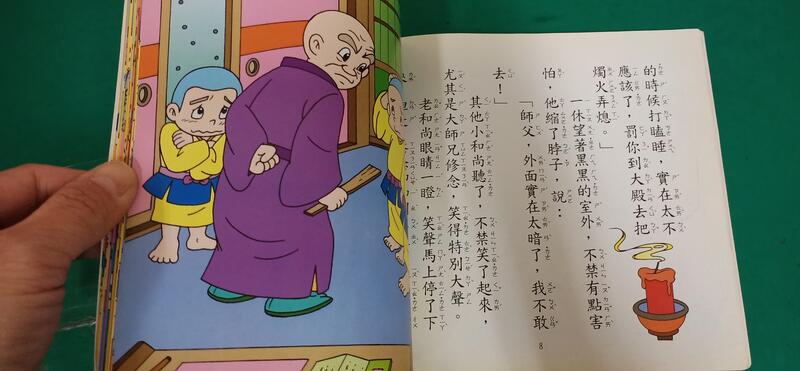 的時候打瞌睡，實在太不
應該了，罰你到大殿去把
燭火弄熄。」
一休望著黑黑的室外，不禁有點害
怕，他縮了脖子，說：
「師父，外面實在太暗了，我不敢
去！」
其他小和尚聽了，不禁笑了起來，
尤其是大師兄修念，笑得特別大聲。
老和尚眼睛一瞪，笑聲馬上停了下
8